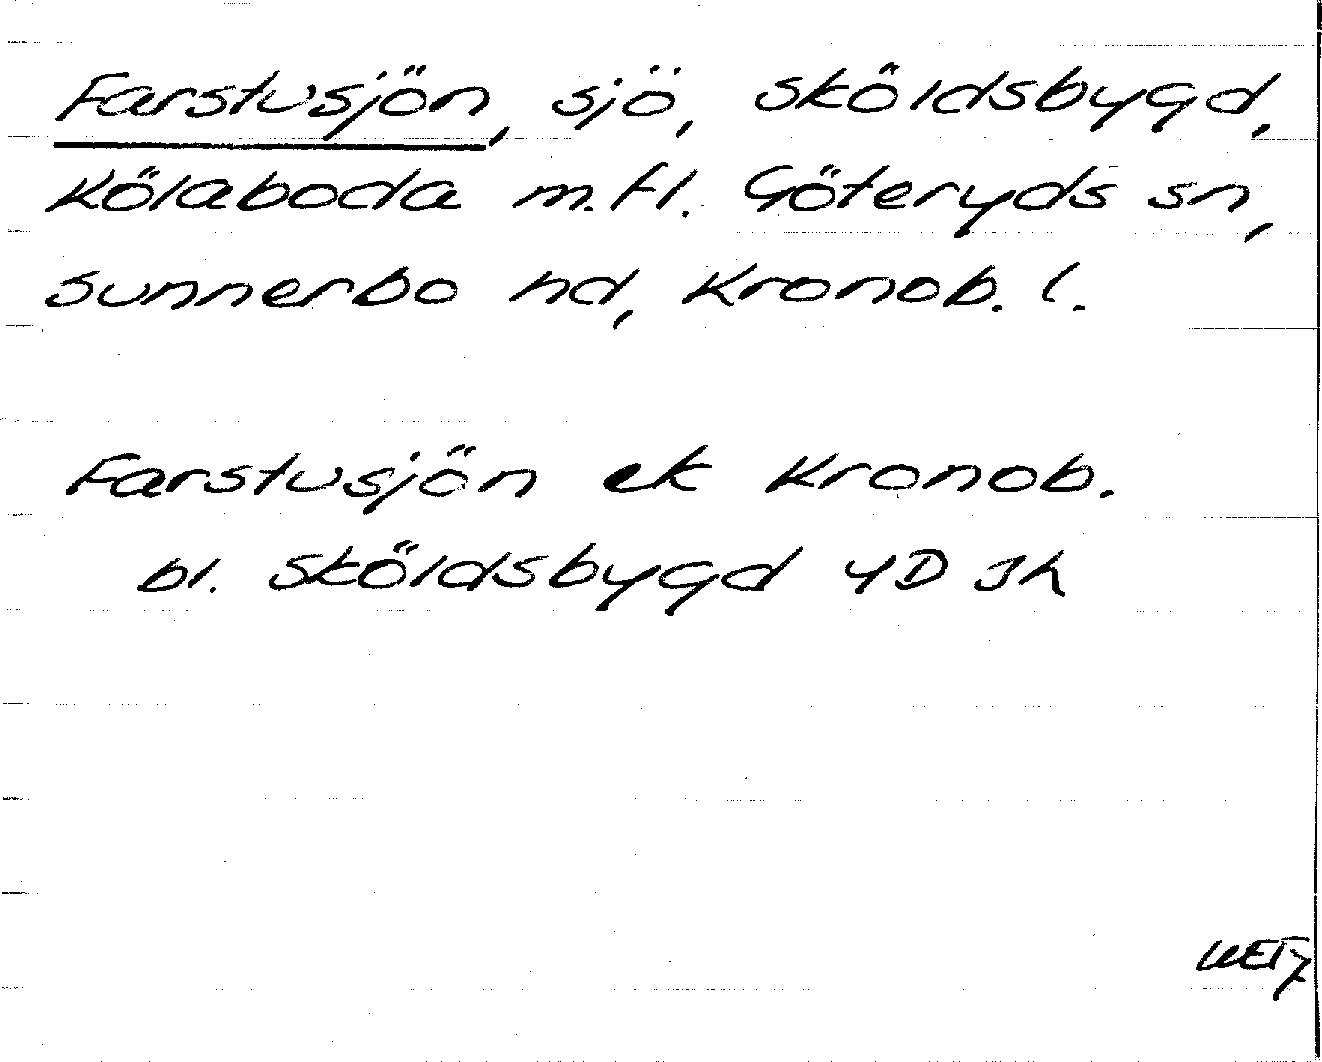 Farstusjön, sjö, Sköldsbygd,
Kölaboda m.fl. Göteryds sn,
Sunnerbo hd, Kronob. l.
Farstusjön ek Kronob.
bl. Sköldsbygd 4D Jh